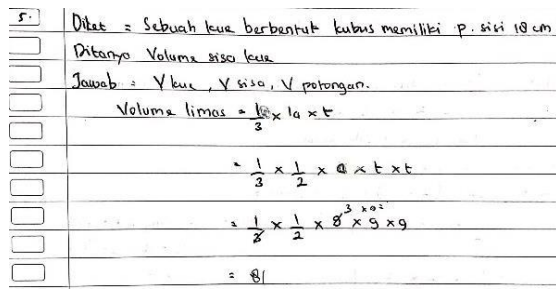 5. Diket = Sebuah kue berbentuk kubus memiliki p. sisi 18 cm
Ditanya Volume sisa kue
Jawab : V kue, V sisa, V potongan.
Volume limas = 1/3 × la × t
= 1/3 × 1/2 × a × t × t
= 1/3 × 1/2 × 8 × 9 × 9
= 81